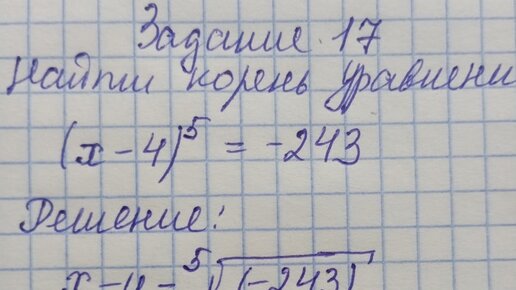 Задание 17
Найти корень уравнени
(x-4)⁵ = -243
Решение:
x-4 = ⁵√(-243)